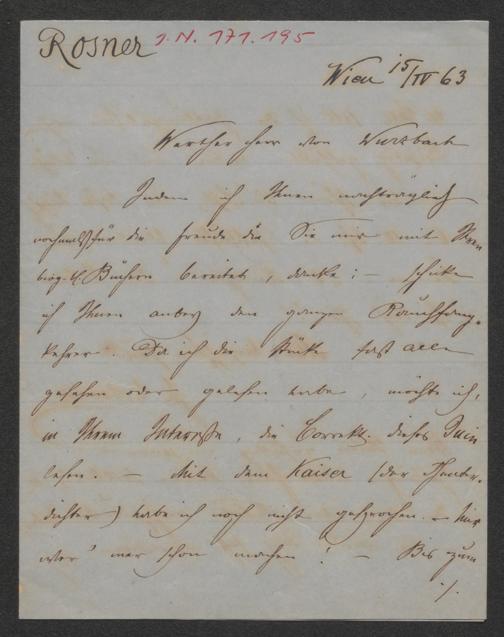 Rosner J.N. 171.195
Wien 15/IV 63
Werther Herr von Wurzbach
Indem ich Ihnen nachträglich
nochmals für die Freude die Sie mir mit Ihren
biog. Büchern bereitet, danke: – schicke
ich Ihnen anbey den ganzen Rauchfang-
kehrer. Da ich die Stücke fast alle
gesehen oder gelesen habe, möchte ich,
in Ihrem Interesse, die Correkt. dieses
lesen. – Mit dem Kaiser (der Theater-
dichter) habe ich noch nicht gesprochen. –
wer' mer schon machen! – Bis zum
./.